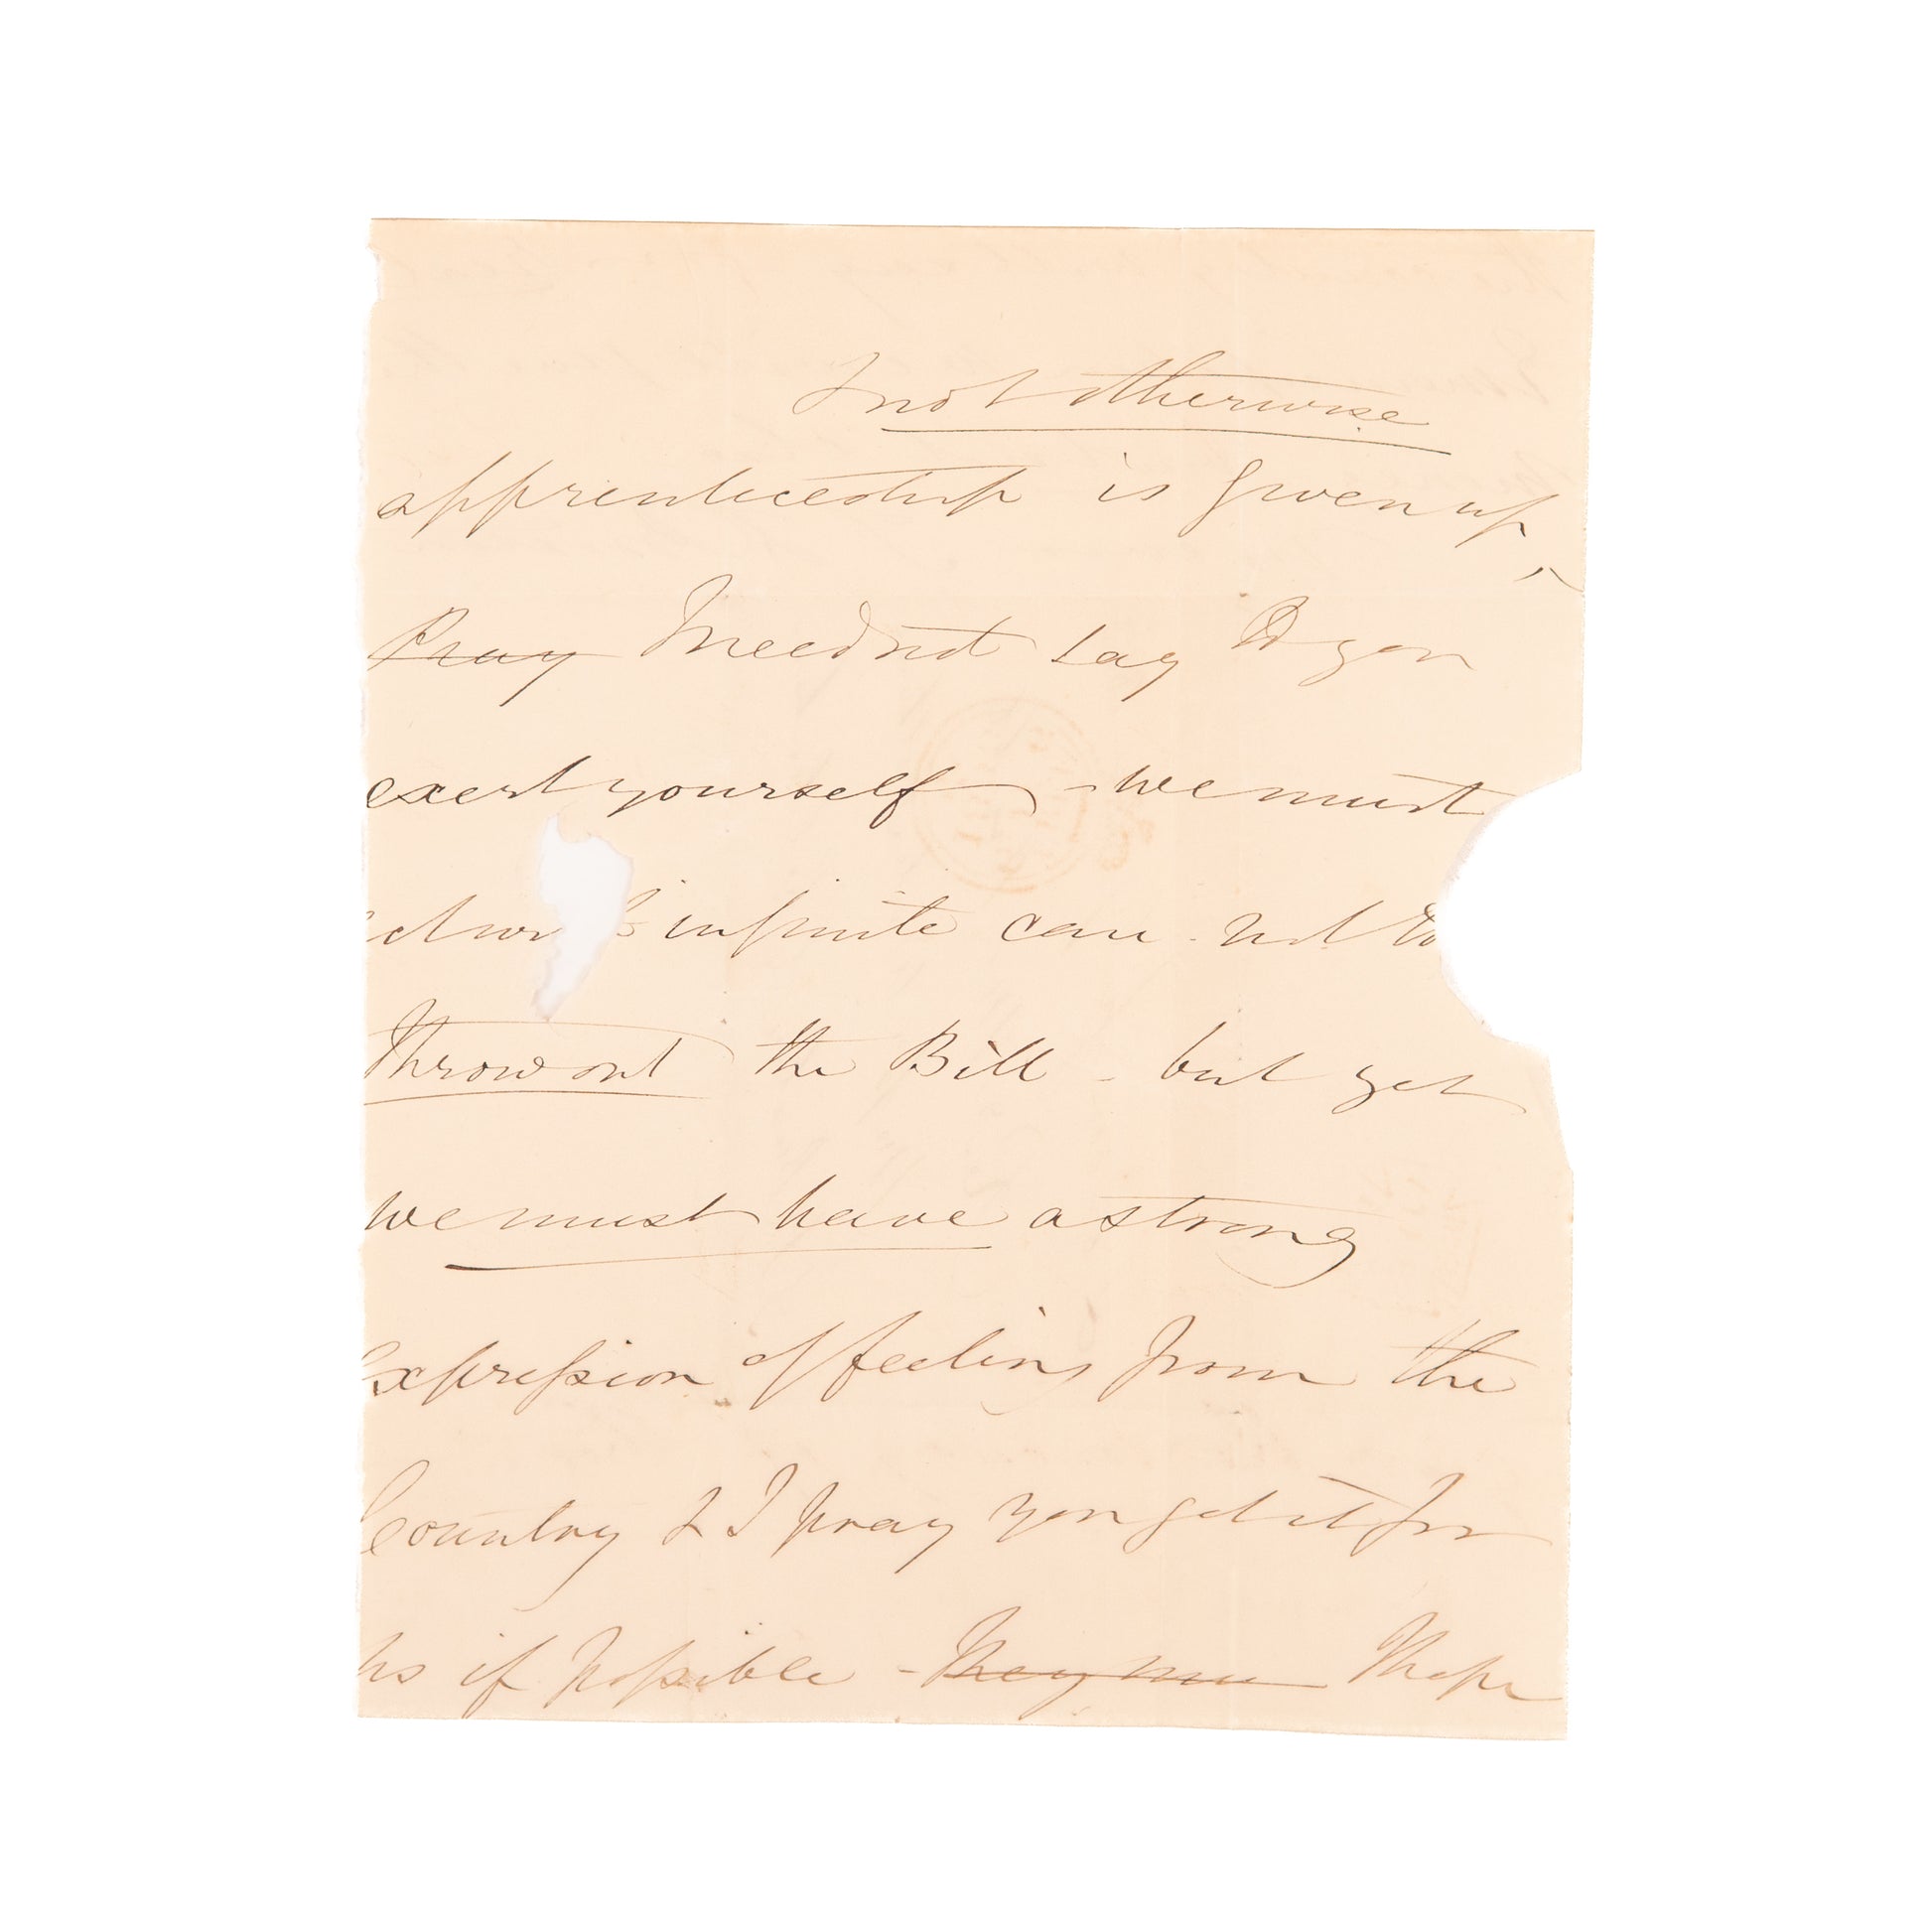 & not otherwise
apprenticeship is given up,
Pray I need not say to you
exert yourself - we must
infinite care not to
throw out the Bill - but yet
we must have a strong
Expression of feeling from the
Country & I pray you get it for
us if possible - They mu I hope